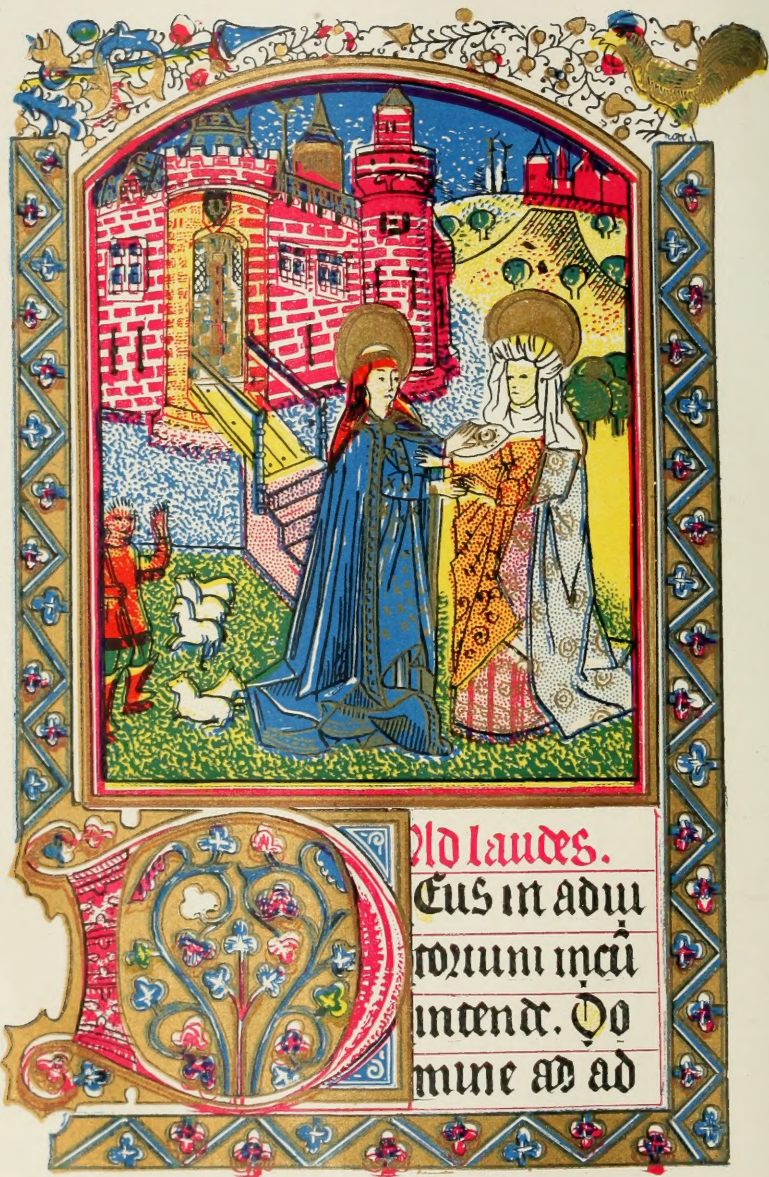 Ad laudes.
DEus in adiu
torium meū
intende. Do
mine ad ad